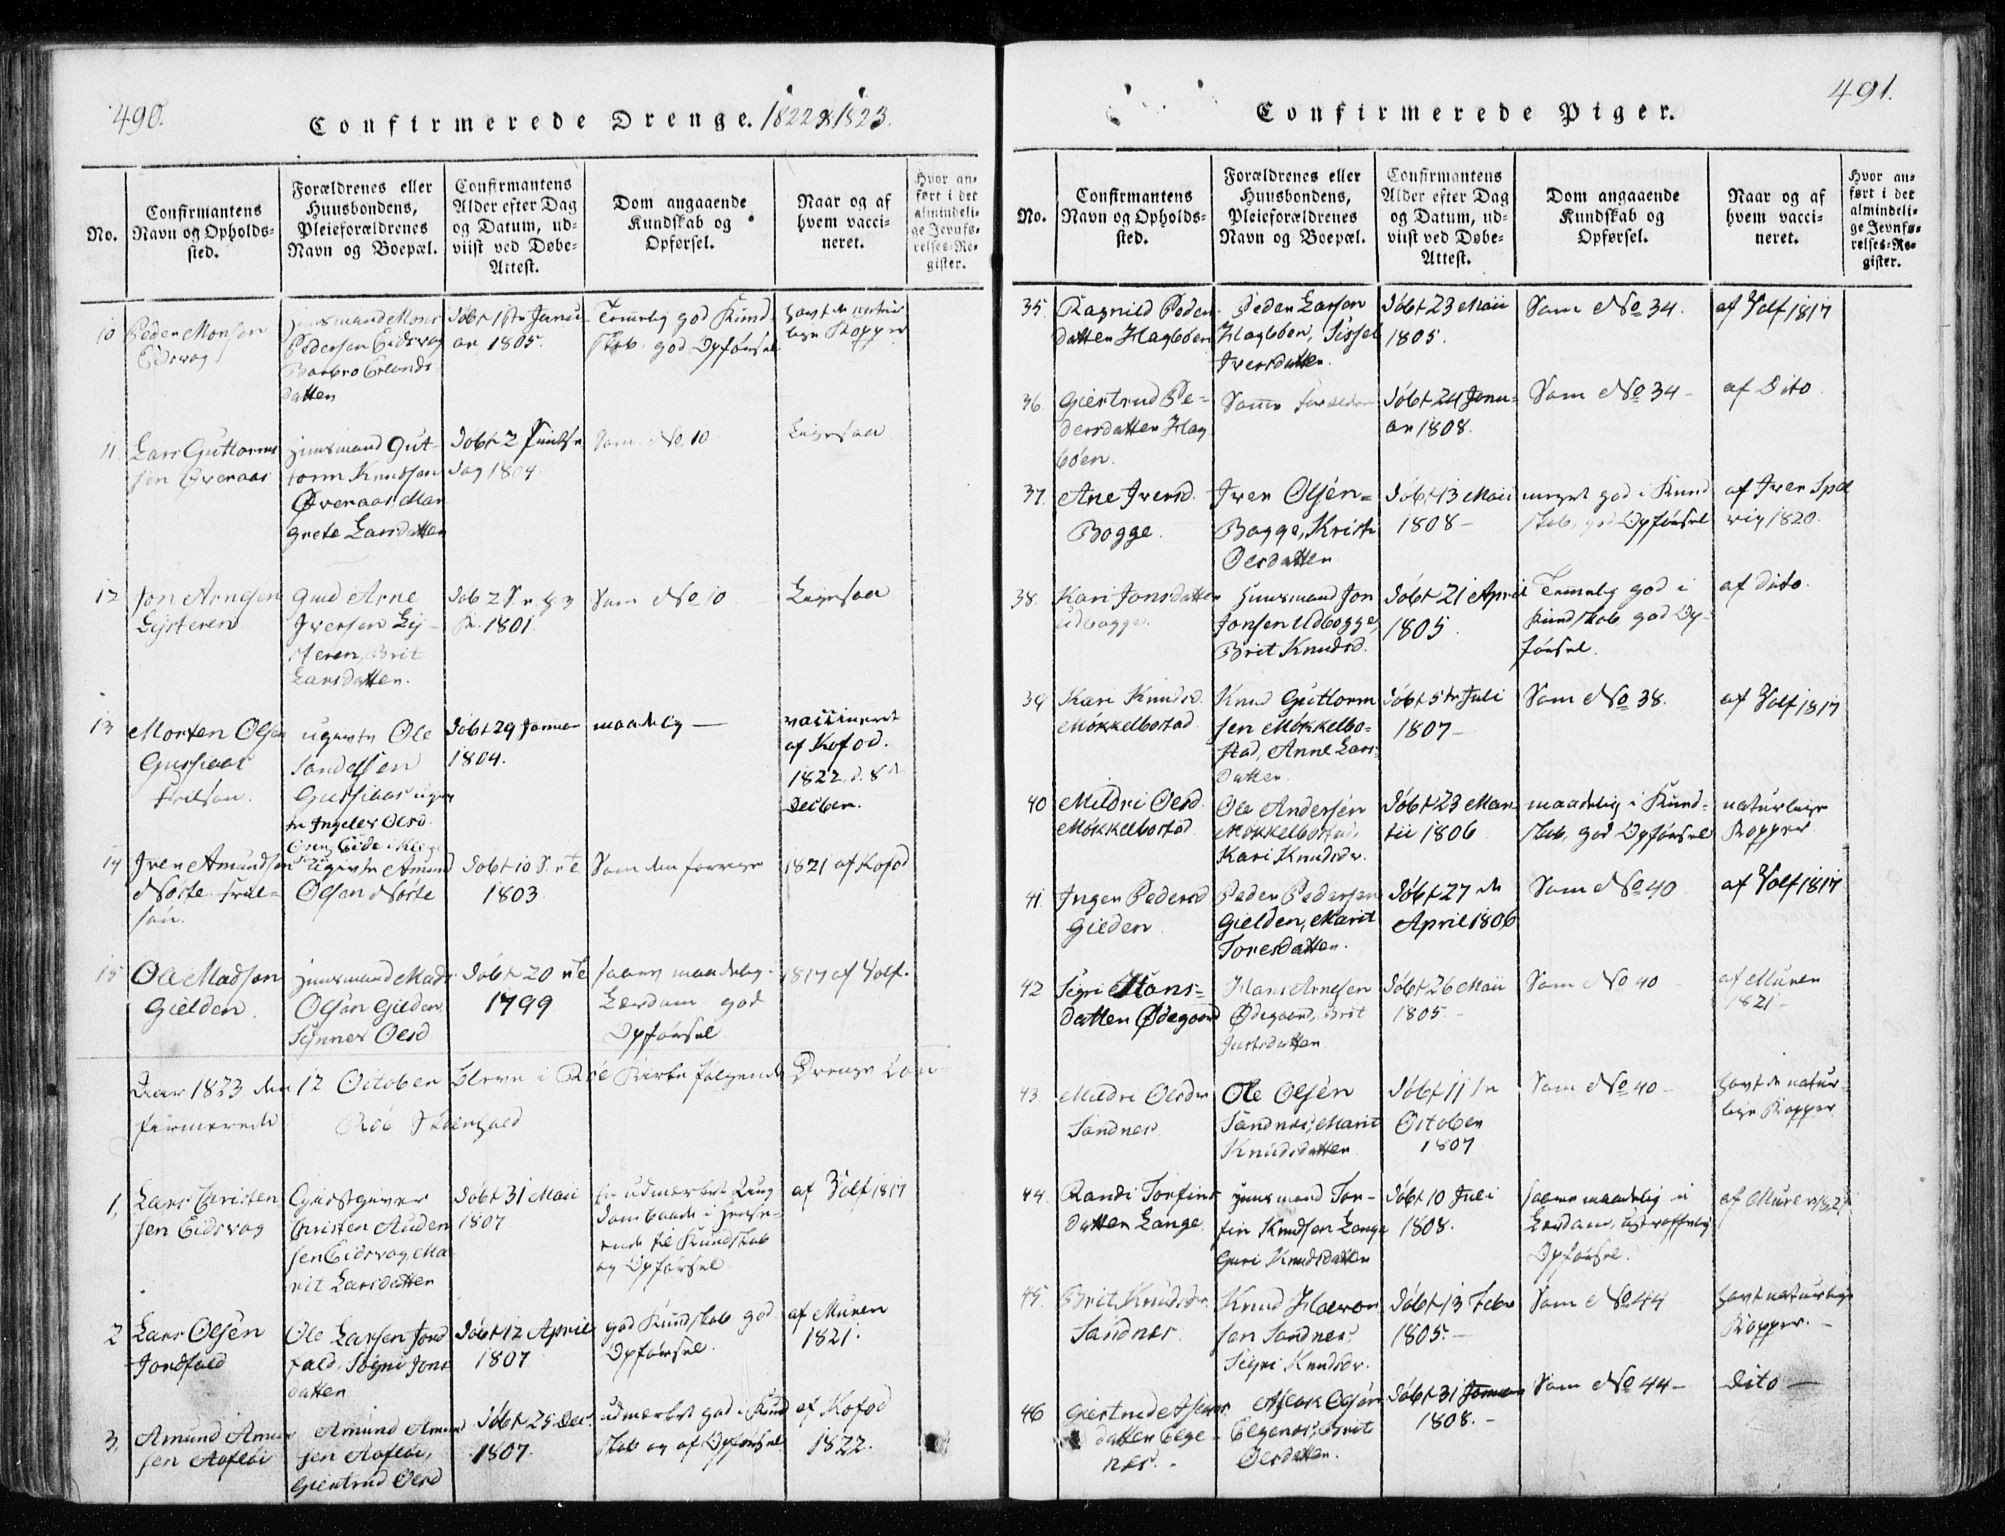 490.
Confirmerede Drenge. 1822 & 1823.
No.
Confirmantens
Navn og Opholds-
sted.
Forældrenes eller
Huusbondens,
Pleieforældrenes
Navn og Boepæl.
Confirmantens
Alder efter Dag
og Datum, ud-
viist ved Døbe-
Attest.
Dom angaaende
Kundskab og
Opførsel.
Naar og af
hvem vacci-
neret.
Hvor an-
ført i det
almindeli-
ge Jevnfø-
relses-Re-
gister.
10
Peder Monsen
Eidsvog
Huusmand Mons
Pedersen Eidsvog
Barbro Erlands
datter
døbt 1ste Janu
ar 1805.
Temmelig god Kund
skab. god Opførsel
havt de natur
lige Kopper
11.
Lars Guttorm
sen Øveraas
Huusmand Gut-
torm Knudsen
Øveraas, Mar
grete Larsdatter
døbt 2 Pintse
dag 1804.
Som No 10
Ligesaa
12
Jon Arnesen
Lysteren
Gmd Arne
Iversen Ly-
steren, Brit
Larsdatter.
1801.
Som No 10
Ligesaa
13
Morten Olsen
Gussiaas
ugivte Ole
Gussiaas
døbt 29 Januar
1804.
maadelig
vaccineret
af Kofod.
1822. d. 8de
Decbr.
14
Iver Amundsen
Nørste
ugivte Amund
Olsen Nørste
1803
Som den forrige
1821 af Kofod
15
Ole Madsen
Gielden.
Huusmand Mads
Olsen Gielden
Synnev Olsd
1799
saare maadelig
Lærdom god
Opførsel
1817 af Volf.
Aar 1823 den 12 October bleve i Røe Kirke følgende Drenge Con-
firmerede
1,
Lars Christen
sen Eidsvog
Giestgiver
Christen Auden
sen Eidsvog Ma
rit Larsdatter
Døbt 31 Maii
1807
og Opførsel
af Volf 1817
2
Lars Olsen
Jordfald
Ole Larsen Jord
fald, Sigri Jons
datter
Døbt 12 April
1807
god Kundskab god
Opførsel.
af Muren
1821.
3,
Amund Amund
sen Aafløi
Amund Amund
sen Aafløi,
Giertrud Olsd
Døbt 25 Dec.
1807.
udmærket god i Kund
skab og af Opførsel
af Kofod
1822.
491.
Confirmerede Piger.
No.
Confirmantens
Navn og Opholds-
sted.
Forældrenes eller
Huusbondens,
Pleieforældrenes
Navn og Boepæl.
Confirmantens
Alder efter Dag
og Datum, ud-
viist ved Døbe-
Attest.
Dom angaaende
Kundskab og
Opførsel.
Naar og af
hvem vacci-
neret.
Hvor an-
ført i det
almindeli-
ge Jevnfø-
relses-Re-
gister.
35.
Ragnild Peders
datter Hagbøen
Peder Larsen
Hagbøen, Sissel
Iversdatter.
døbt 23 Maii
1805.
Som No 34.
af Volf 1817
36.
Giertrud Pe-
dersdatter Hag
bøen.
Samme Forældre
Døbt 24 Janu-
ar 1808.
Som No 34 -
af Dito
37.
Ane Iversd.
Bogge.
Iver Olsen
Bogge, Kristi
Olsdatter
Døbt 13 Maii
1808 -
meget god i Kund
skab, god Opførsel
af Iver Spil
vig 1820.
38.
Kari Jonsdatter
Udbogge.
Huusmand Jon
Jonsen Udbogge,
Brit Knudsd.
Døbt 21 April
1805.
Temmelig god i
Kundskab god Op-
førsel.
af dito.
39
Kari Knudsd
Møkkelbostad
Knud Guttorm
sen Møkkelbo-
stad, Anne Lars-
datter
døbt 5te Juli
1807 -
Som No 38.
af Volf 1817
40
Mildri Olsd.
Møkkelbostad
Ole Andersen
Møkkelbostad,
Kari Knudsdr.
Døbt 23 Mar
tii 1806
maadelig i Kund-
skab, god Opførsel
naturlige
Kopper
41.
Inger Pedersd
Gielden
Peder Pedersen
Gielden, Marit
Toresdatter.
Døbt 27 de
April 1806
Som No 40
af Volf 1817
42
Sigri Hans-
datter Ødegaard
Hans Arnesen
Ødegaard, Brit
Justsdatter
Døbt 26 Maii
1805 -
Som No 40
af Muren
1821 -
43.
Mildri Olsdr
Sandnes
Ole Olsen
Sandnes, Marit
Knudsdatter
Døbt 11te
October
1807
Som No 40 -
havt de natur-
lige Kopper
44.
Randi Torfins
datter Lange.
Huusmand Tor-
fin Knudsen Lange
Guri Knudsdatter
Døbt 10 Juli
1808.
saare maadelig i
Lærdom, ustraffelig
Opførsel.
af Muren 1821
45.
Brit Knudsdr.
Sandnes.
Knud Halvor
sen Sandnes
Sigri Knudsdr.
Døbt 13 Febr
1805. -
Som No 44
havt naturlige
Kopper. -
46
Giertrud Aslaks
datter Elge-
nes. -
Aslak Olsen
Elgenes, Brit
Olsdatter.
Døbt 31 Januar
1808. -
Som No 44 -
Dito -